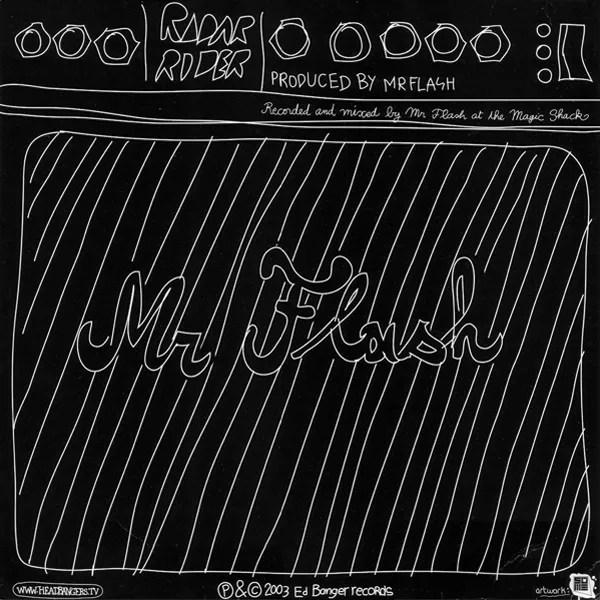 RADAR
RIDER
PRODUCED BY MR FLASH
Recorded and mixed by Mr Flash at the Magic Shack
Mr Flash
WWW.HEADBANGERS.TV
Ⓟ & © 2003 Ed Banger records
artwork: